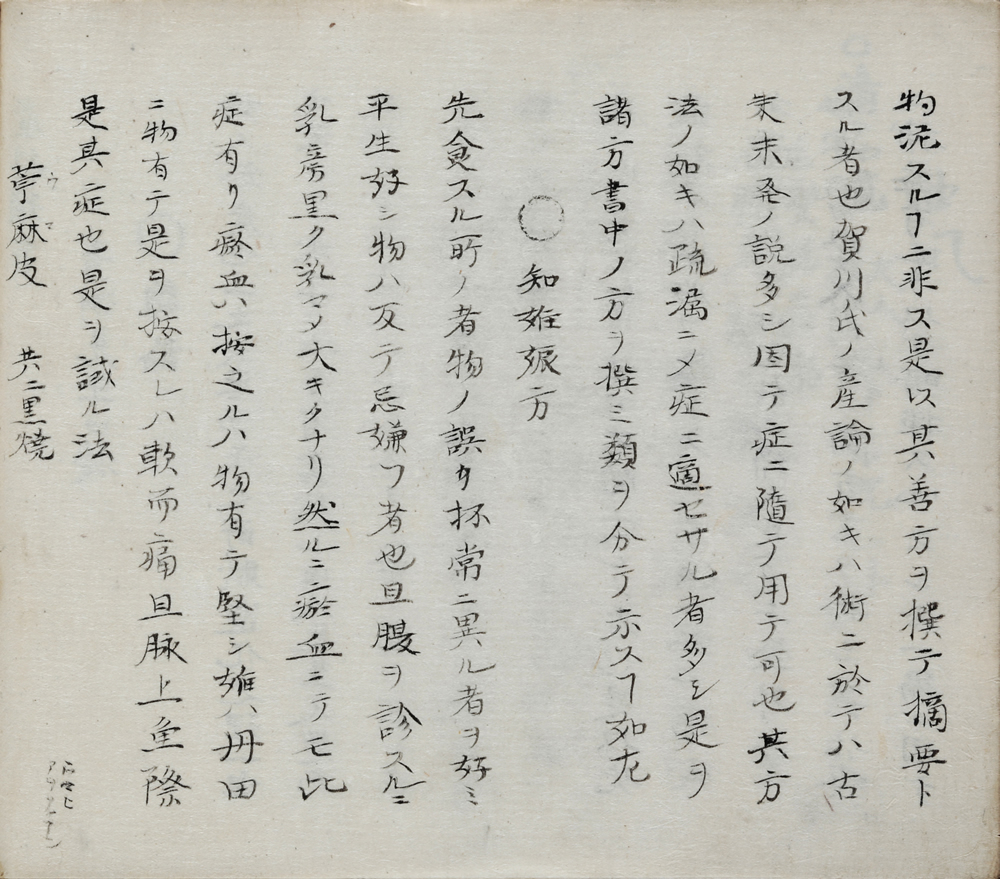 物泥スルヿニ非ス是以其善方ヲ撰テ摘要ト
スル者也賀川氏ノ産論ノ如キハ術ニ於テハ古
来未発ノ説多シ因テ症ニ随テ用テ可也其方
法ノ如キハ疏漏ニメ症ニ適セサル者多シ是ヲ
諸方書中ノ方ヲ撰ミ類ヲ分テ示スヿ如左
○ 知妊娠方
先食スル所ノ者物ノ誤カ杯常ニ異ル者ヲ好ミ
平生好シ物ハ反テ忌嫌フ者也且腹ヲ診スルニ
乳房黒ク乳マメ大キクナリ然ルニ瘀血ニテモ此
症有リ瘀血ハ按之ルハ物有テ堅シ妊ハ丹田
ニ物有テ是ヲ按スレハ軟而痛且脉上魚際
是其症也是ヲ試ル法
苧麻皮 共ニ黒焼